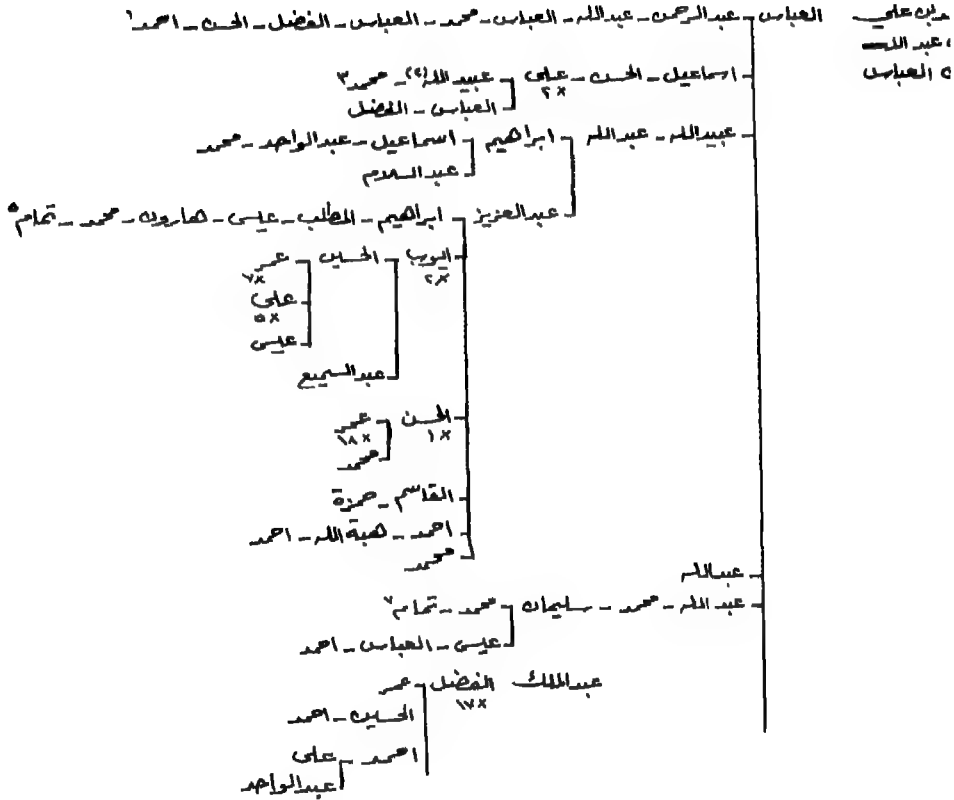 بن علي العباس عبدالرحمن - عبدالله - العباس - محمد - العباس - الفضل - الحسن - احمد ١
عبد الله
العباس
اسماعيل - الحسن - علي عبيد الله (٢) - محمد ٣
×٢
العباس - الفضل
عبيدالله - عبدالله ابراهيم اسماعيل - عبدالواحد - محمد
عبدالسلام
عبدالعزيز ابراهيم - المطلب - عيسى - هارون - محمد - تمام ٥
ايوب الحسين عمر
×٢ ×٧
علي
×٥
عيسى
عبدالسميع
الحسن عمر
×١ ×١٨
محمد
القاسم - حمزة
احمد - هبة الله - احمد
محمد
عبدالله
عبد الله - محمد - سليمان محمد - تمام ٧
عيسى - العباس - احمد
عبدالملك الفضل عمر
×١٧
الحسين - احمد
احمد علي
عبدالواحد